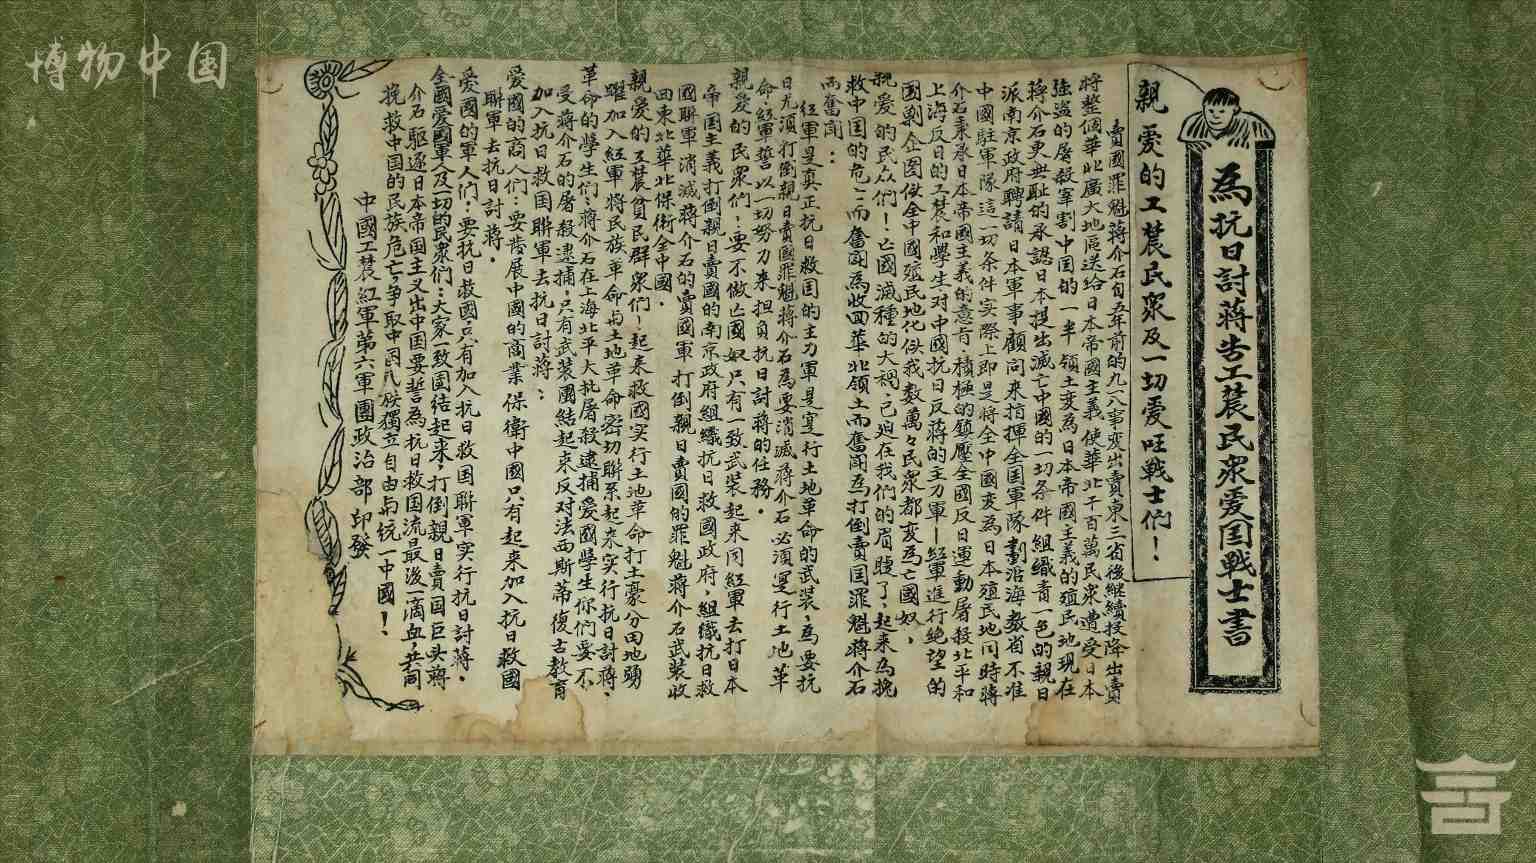 博物中国
為抗日討蔣告工農民眾爱国戰士書
親爱的工農民眾及一切爱国戰士們！
賣國罪魁蔣介石自五年前的九一八事变出賣東三省後継續投降出賣
將整個華北廣大地區送給日本帝國主義使華北千百萬民眾遭受日本
強盜的屠殺宰割中国的一半領土变為日本帝國主義的殖民地現在
蔣介石更無耻的承認日本提出滅亡中國的一切条件組織青一色的親日
派南京政府聘請日本軍事顧問来指揮全国軍隊劃沿海数省不准
中國駐軍隊這一切条件实際上即是將全中國变為日本殖民地同時蔣
介石秉承日本帝國主義的意肯積極的鎮壓全國反日運動屠殺北平和
上海反日的工農和學生对中國抗日反蔣的主力軍—紅軍進行絶望的
國剿企图使全中國殖民地化使我数萬々民眾都变為亡國奴，
親爱的民众們！亡國滅種的大禍已迫在我們的眉睫了，起来為挽
救中国的危亡而奮鬪為收回華北領土而奮鬪為打倒賣国罪魁蔣介石
而奮鬪：
紅軍是真正抗日救国的主力軍是寔行土地革命的武装，為要抗
日尤須打倒親日賣國罪魁蔣介石為要消滅蔣介石必須寔行土地革
命，紅軍誓以一切努力来担負抗日討蔣的任務。
親爱的民眾們：要不做亡國奴只有一致武装起来同紅軍去打日本
帝国主義打倒親日賣國的南京政府組織抗日救國政府，組織抗日救
國聯軍消滅蔣介石的賣國軍打倒親日賣國的罪魁蔣介石武装收
回東北華北保衛全中國.
親爱的工農貧民群眾們！起来救國实行土地革命打土豪分田地踴
躍加入紅軍將民族革命与土地革命密切聯系起来实行抗日討蔣，
革命的學生們：蔣介石在上海北平大批屠殺逮捕爱國學生你們要不
受蔣介石的屠殺逮捕，只有武装團結起来反对法西斯蒂復古教育
加入抗日救国聯軍去抗日討蔣：
爱國的商人們：要發展中國的商業保衛中國只有起来加入抗日救國
聯軍去抗日討蔣。
爱國的軍人們：要抗日救國，只有加入抗日救国聯軍实行抗日討蔣。
全國爱國軍人及一切的民眾們：大家一致團结起来，打倒親日賣国巨头蔣
介石驅逐日本帝国主义出中国要誓為抗日救国流最後一滴血，共同
挽救中国的民族危亡，争取中国人民獨立自由与統一中國！
中國工農紅軍第六軍團政治部印發